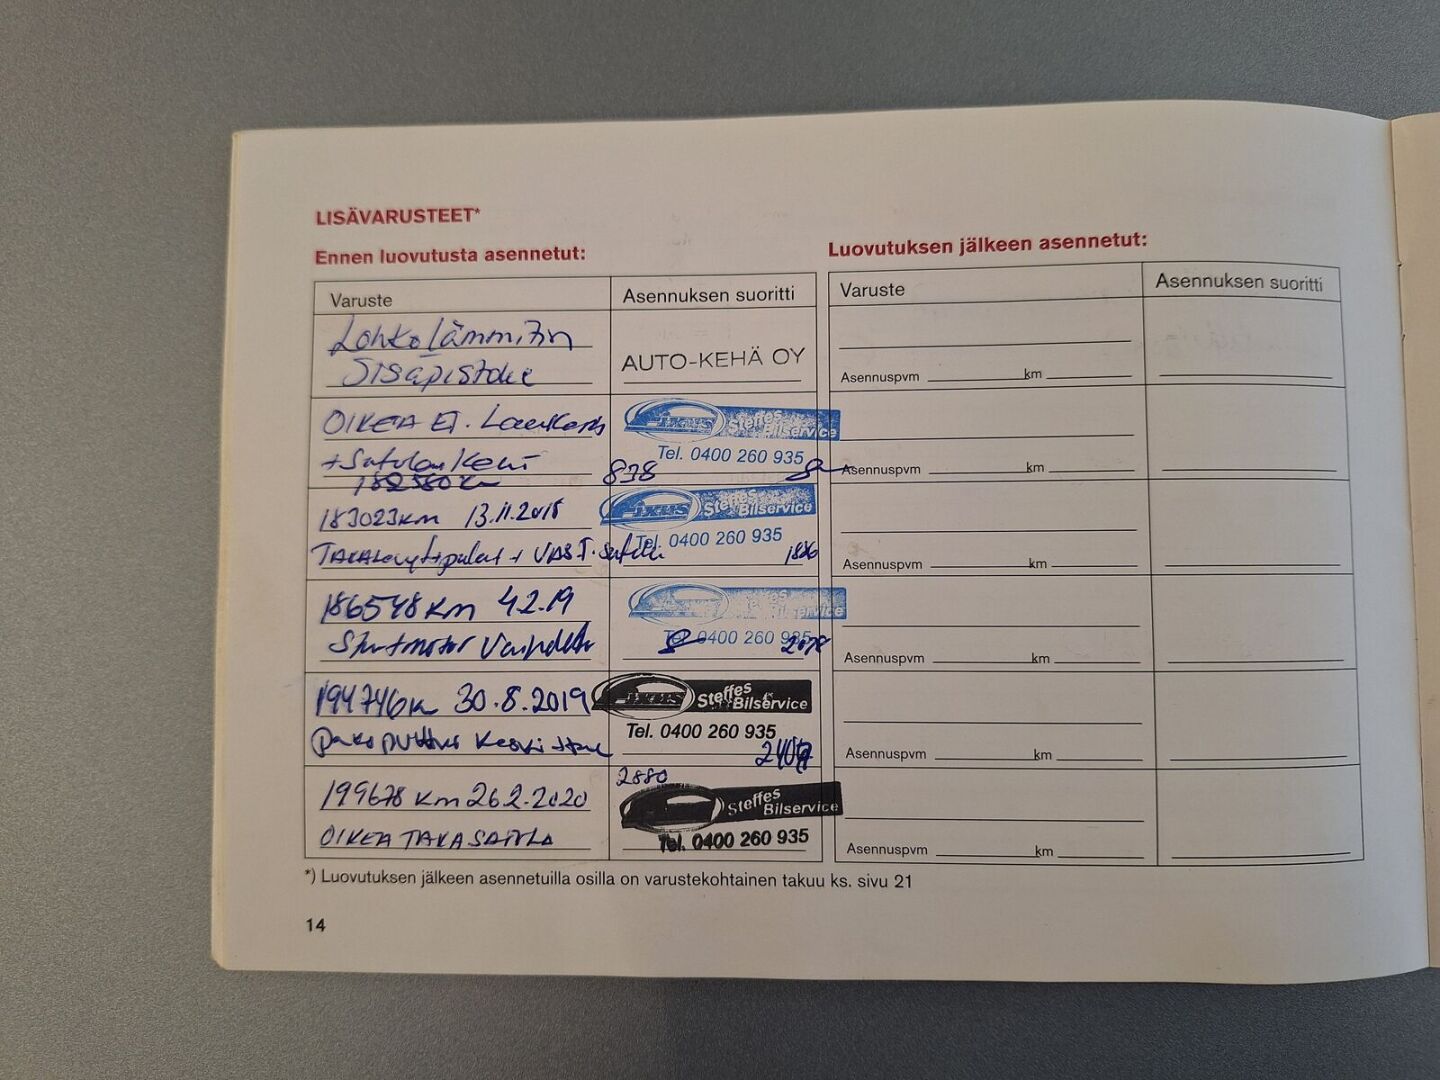 LISÄVARUSTEET*
Ennen luovutusta asennetut:
Varuste
Asennuksen suoritti
Lohkolämmitin
Sisäpistoke
AUTO-KEHÄ OY
OIKEA ET.
+ Satulan
182580 km
Steffes
Bilservice
Tel. 0400 260 935
838
183023 km 13.11.2018
+ VAST.
FIXUS
Steffes
Bilservice
Tel. 0400 260 935
186548 km 4.2.19
Startmotor
Steffes
Bilservice
Tel. 0400 260 935
2078
194746 km 30.8.2019
FIXUS
Steffes
Bilservice
Tel. 0400 260 935
199678 km 26.2.2020
OIKEA TAKA SATULA
2880
Steffes
Bilservice
Tel. 0400 260 935
Luovutuksen jälkeen asennetut:
Varuste
Asennuksen suoritti
Asennuspvm km
Asennuspvm km
Asennuspvm km
Asennuspvm km
Asennuspvm km
Asennuspvm km
*) Luovutuksen jälkeen asennetuilla osilla on varustekohtainen takuu ks. sivu 21
14